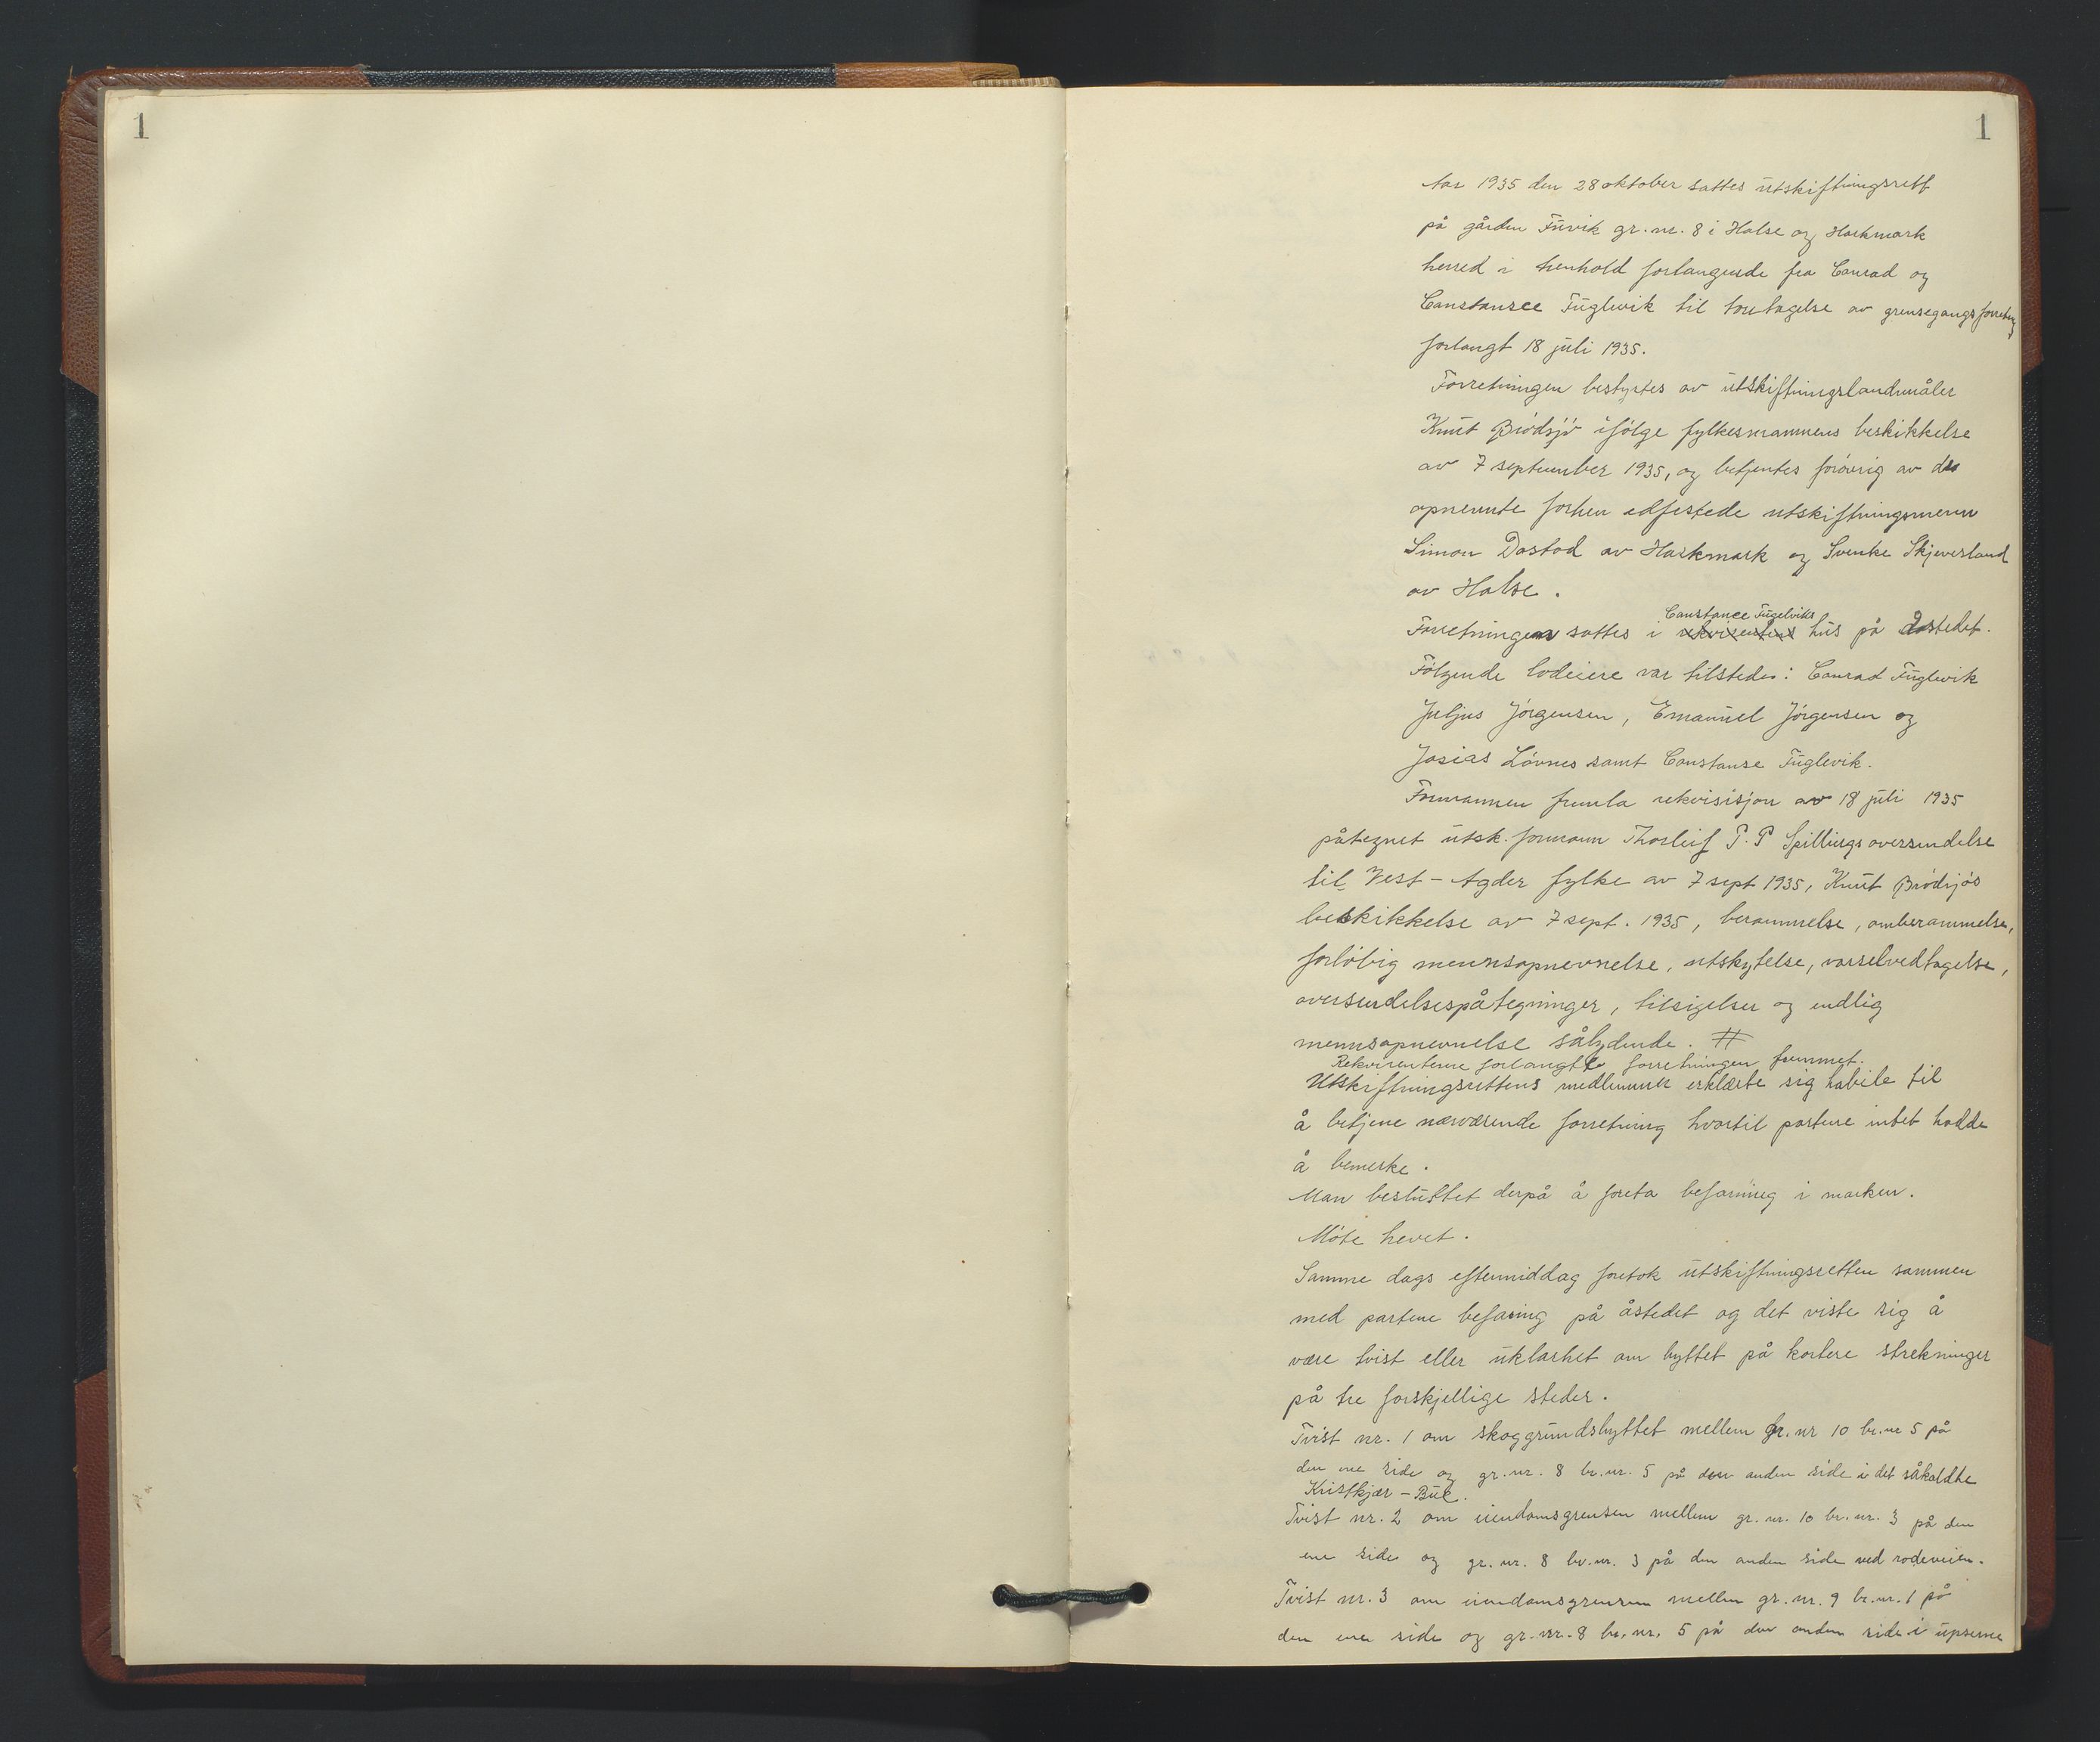 1
1
Aar 1935 den 28 oktober sattes utskiftningsrett
på gården Fuvik gr.nr. 8 i Halse og Harkmark
herred i henhold forlangende fra Conrad og
Constansee Fuglevik til foretagelse av grensegangsforretng
forlangt 18 juli 1935.
Forretningen bestyrtes av utskiftningslandmåler
Knut Brödsjö ifölge fylkesmannens beskikkelse
av 7 september 1935, og betjentes forövrig av de
opnevnte forhen edfestede utskiftningsmenn
Simon Dastod av Harkmark og Svenke Skjeversland
av Halse.
Constance Fugelviks
Forretningen sattes i rekvirentens hus på åstedet.
Fölgende lodeiere var tilstede: Conrad Fuglevik
Juljus Jörgensen, Emanuel Jörgensen og
Josias Lövnes samt Constanse Fuglevik.
Formannen fremla rekvisisjon av 18 juli 1935
påtegnet utsk.formann Thorleif P. P Spillings oversendelse
til Vest-Agder fylke av 7 sept 1935, Knut Brödsjös
beskikkelse av 7 sept. 1935, berammelse, omberammelse,
forlöbig mennsopnevnelse, utskytelse, varselvedtagelse,
oversendelsespåtegninger, tilsigelser og endlig
mennsopnevnelse sålydende. #
Rekvirentene forlangte forretningen fremmet.
Utskiftningsrettens medlemmer erklærte sig habile til
å betjene nærværende forretning hvortil partene intet hadde
å bemerke.
Man besluttet derpå å foreta befaring i marken.
Möte hevet.
Samme dags eftermiddag foretok utskiftningsretten sammen
med partene befaring på åstedet og det viste sig å
være tvist eller uklarhet om byttet på kortere strekninger
på tre forskjellige steder.
Tvist nr. 1 om skoggrundsbyttet mellem gr.nr 10 br.nr 5 på
den ene side og gr.nr. 8 br.nr. 5 på den anden side i det såkaldte
Kristkjær-Bue.
Tvist nr. 2 om eiendomsgrensen mellem gr.nr. 10 br.nr. 3 på den
ene side og gr.nr. 8 br.nr. 3 på den anden side ved rodeveien.
Tvist nr. 3 om eiendomsgrensen mellem gr.nr. 9 br.nr. 1 på
den ene side og gr.nr. 8 br.nr. 5 på den anden side i upserne